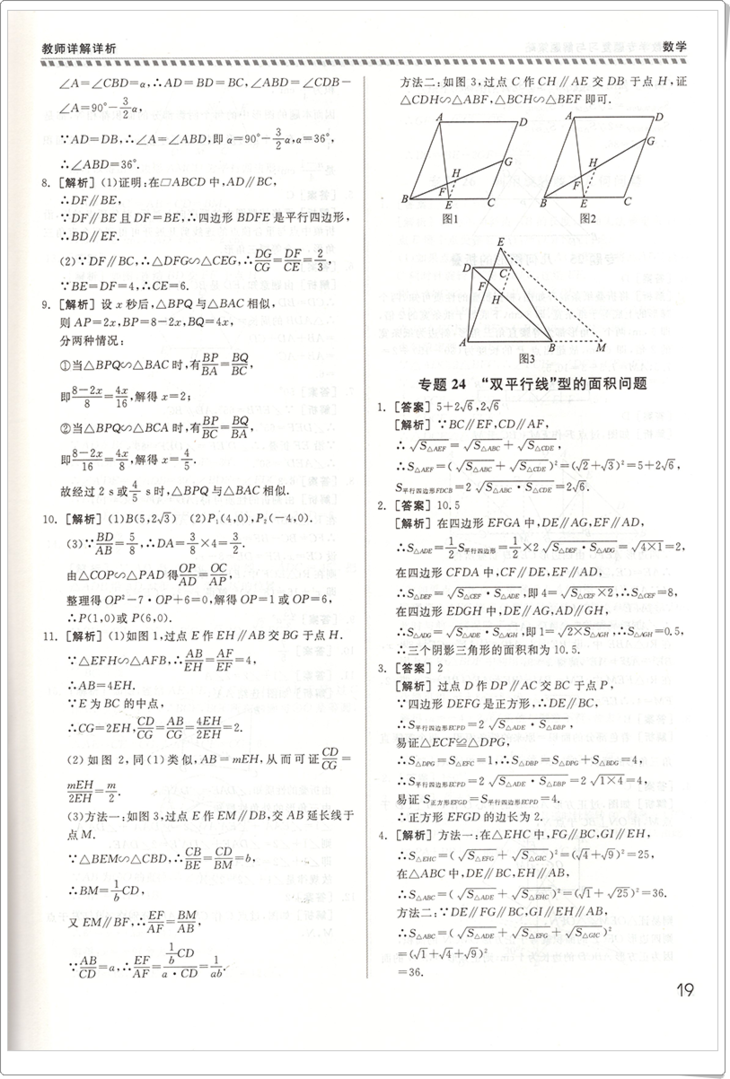 教师详解详析
数学
∠A=∠CBD=α,∴AD=BD=BC,∠ABD=∠CDB-
∠A=90°-3/2α,
∵AD=DB,∴∠A=∠ABD,即α=90°-3/2α,α=36°,
∴∠ABD=36°.
8. [解析] (1)证明:在□ABCD中,AD∥BC,
∴DF∥BE,
∵DF∥BE且DF=BE,∴四边形BDFE是平行四边形,
∴BD∥EF.
(2)∵DF∥BC,∴△DFG∽△CEG,∴DG/CG=DF/CE=2/3,
∵BE=DF=4,∴CE=6.
9. [解析] 设x秒后,△BPQ与△BAC相似,
则AP=2x,BP=8-2x,BQ=4x,
分两种情况:
①当△BPQ∽△BAC时,有BP/BA=BQ/BC,
即(8-2x)/8=4x/16,解得x=2;
②当△BPQ∽△BCA时,有BP/BC=BQ/BA,
即(8-2x)/16=4x/8,解得x=4/5.
故经过2 s或4/5 s时,△BPQ与△BAC相似.
10. [解析] (1)B(5,2√3) (2)P₁(4,0),P₂(-4,0).
(3)∵BD/AB=5/8,∴DA=3/8×4=3/2.
由△COP∽△PAD得OP/AD=OC/AP,
整理得OP²-7·OP+6=0,解得OP=1或OP=6,
∴P(1,0)或P(6,0).
11. [解析] (1)如图1,过点E作EH∥AB交BG于点H.
∵△EFH∽△AFB,∴AB/EH=AF/EF=4,
∴AB=4EH.
∵E为BC的中点,
∴CG=2EH,CD/CG=AB/CG=4EH/2EH=2.
(2)如图2,同(1)类似,AB=mEH,从而可证CD/CG=
mEH/2EH=m/2.
(3)方法一:如图3,过点E作EM∥DB,交AB延长线于
点M.
∵△BEM∽△CBD,∴CB/BE=CD/BM=b,
∴BM=1/b CD,
又EM∥BF,∴EF/AF=BM/AB,
∵AB/CD=a,∴EF/AF=(1/b CD)/(a·CD)=1/ab.
方法二:如图3,过点C作CH∥AE交DB于点H,证
△CDH∽△ABF,△BCH∽△BEF即可.
A
D
G
H
F
B
E
C
图1
A
D
G
H
F
B
E
C
图2
E
D
C
F
H
A
B
M
图3
专题24 “双平行线”型的面积问题
1. [答案] 5+2√6,2√6
[解析] ∵BC∥EF,CD∥AF,
∴√S△AEF=√S△ABC+√S△CDE,
∴S△AEF=(√S△ABC+√S△CDE)²=(√2+√3)²=5+2√6,
S平行四边形FDCB=2√S△ABC·S△CDE=2√6.
2. [答案] 10.5
[解析] 在四边形EFGA中,DE∥AG,EF∥AD,
∴S△ADE=1/2S平行四边形=1/2×2√S△DEF·S△ADG=√4×1=2,
在四边形CFDA中,CF∥DE,EF∥AD,
∴S△DEF=√S△CEF·S△ADE,即4=√S△CEF×2,∴S△CEF=8,
在四边形EDGH中,DE∥AG,AD∥GH,
∴S△ADG=√S△ADE·S△AGH,即1=√2×S△AGH,∴S△AGH=0.5,
∴三个阴影三角形的面积和为10.5.
3. [答案] 2
[解析] 过点D作DP∥AC交BC于点P,
∵四边形DEFG是正方形,∴DE∥BC,
∴S平行四边形ECPD=2√S△ADE·S△DBP,
易证△ECF≌△DPG,
∴S△DPG=S△EFC=1,∴S△DBP=S△DPG+S△BDG=4,
∴S平行四边形ECPD=2√S△ADE·S△DBP=2√1×4=4,
易证S正方形EFGD=S平行四边形ECPD=4.
∴正方形EFGD的边长为2.
4. [解析] 方法一:在△EHC中,FG∥BC,GI∥EH,
∴S△EHC=(√S△EFG+√S△GIC)²=(√4+√9)²=25,
在△ABC中,DE∥BC,EH∥AB,
∴S△ABC=(√S△ADE+√S△EHC)²=(√1+√25)²=36.
方法二:∵DE∥FG∥BC,GI∥EH∥AB,
∴S△ABC=(√S△ADE+√S△EFG+√S△GIC)²
=(√1+√4+√9)²
=36.
19